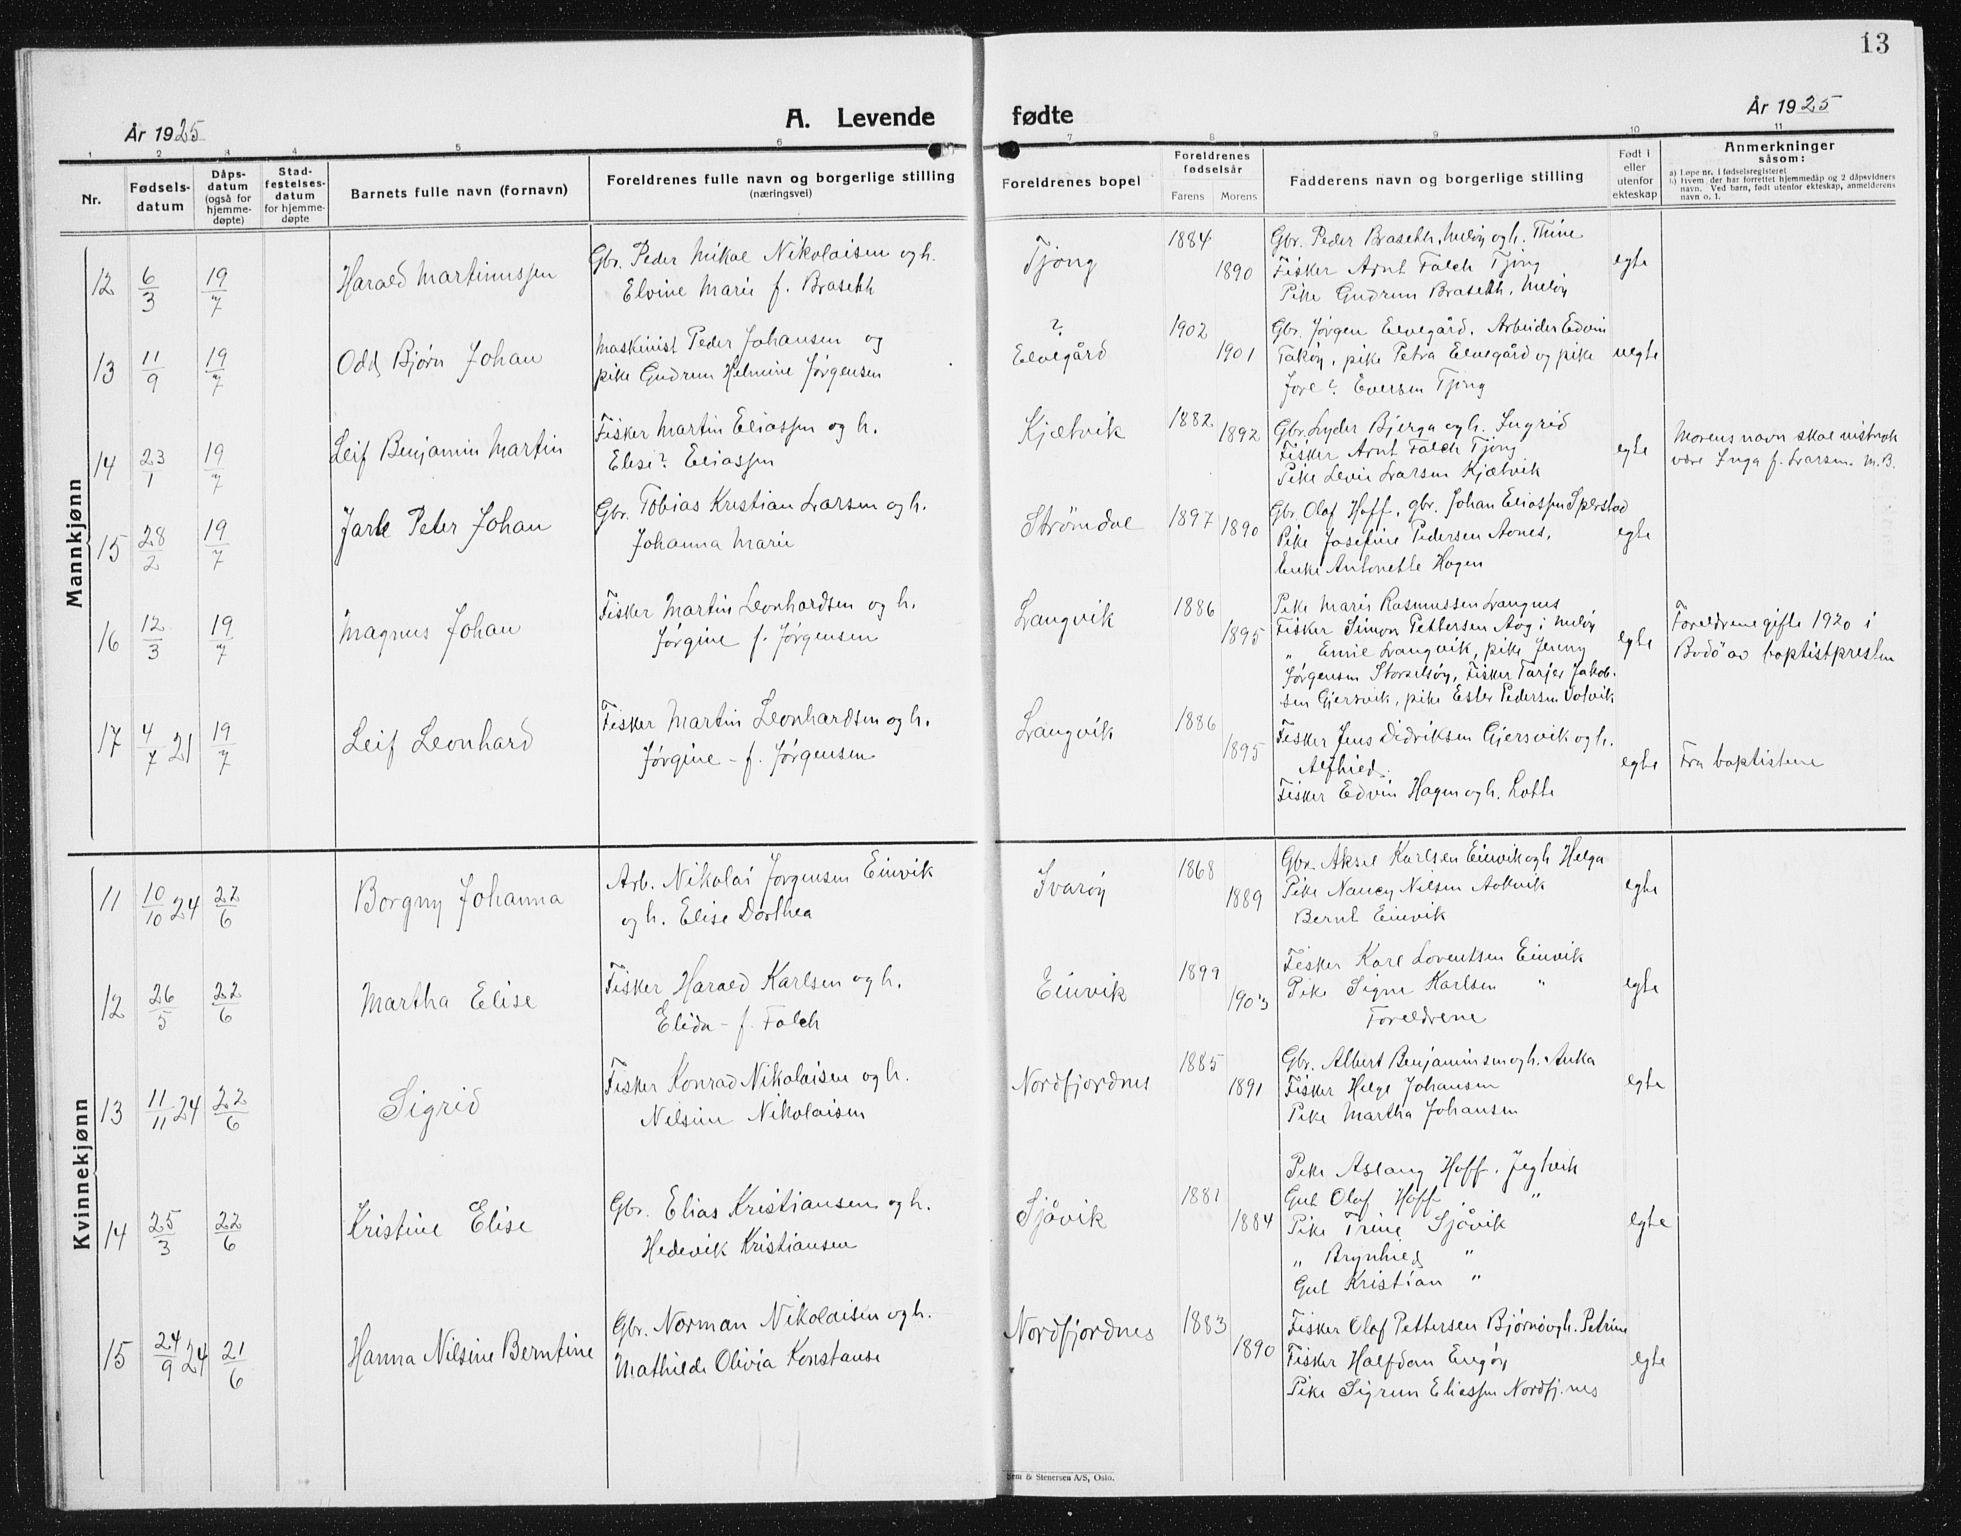 13
År 1925
A. Levende fødte
År 1925
1 2 3 4 5 6 7 8 9 10 11
Nr.
Fødsels-
datum
Dåps-
datum
(også for
hjemme-
døpte)
Stad-
festelses-
datum
for hjemme-
døpte
Barnets fulle navn (fornavn)
Foreldrenes fulle navn og borgerlige stilling
(næringsvei)
Foreldrenes bopel
Foreldrenes
fødselsår
Farens Morens
Fadderens navn og borgerlige stilling
Født i
eller
utenfor
ekteskap
Anmerkninger
såsom:
a) Løpe nr. i fødselsregisteret
b) Hvem der har forrettet hjemmedåp og 2 dåpsvidners
navn. Ved barn, født utenfor ekteskap, anmelderens
navn o. l.
Mannkjønn
12 6/3 19/7 Harald Martinussen
Gbr. Peder Mikal Nikolaisen og h.
Elvine Marie f. Brasetth
Tjong 1884 1890
Gbr. Peder Brasetth, Meløy og h. Thine
Fisker Arnt Falch Tjong
Pike Gudrun Brasetth, Meløy
egte
13 11/9 19/7 Odd Bjørn Johan
Maskinist Peder Johansen og
pike Gudrun Helmine Jørgensen
?
Elvegård 1902 1901
Gbr. Jørgen Elvegård. Arbeider Edvin
Takøy, pike Petra Elvegård og pike
Jore? Eversen Tjong
uegte
14 23/1 19/7 Leif Benjamin Martin
Fisker Martin Eliassen og h.
Elise? Eliassen
Kjætvik 1882 1892
Gbr. Lyder Bjerga og h. Ingrid
Fisker Arnt Falch Tjong
Pike Levin Larsen Kjætvik
egte
Morens navn skal vistnok
være Inga f. Larsen. M.B.
15 28/2 19/7 Jarle Peter Johan
Gbr. Tobias Kristian Larsen og h.
Johanna Marie
Strømdal 1897 1890
Gbr. Olaf Hoff, gbr. Johan Eliassen Sperstad
Pike Josefine Pedersen Aanes,
Enke Antonette Hagen
egte
16 12/3 19/7 Magnus Johan
Fisker Martin Leonhardsen og h.
Jørgine f. Jørgensen
Langvik 1886 1895
Pike Marie Rasmussen Langnes
Fisker Simon Pettersen Aag i Meløy
" Emil Langvik, pike Jenny
Jørgensen Storselsøy, Fisker Tarjer Jakob-
sen Gjersvik, pike Ester Pedersen Valvik
egte
Foreldrene gifte 1920 i
Bodö av baptistpresten
17 4/7 21 19/7 Leif Leonhard
Fisker Martin Leonhardsen og h.
Jørgine - f. Jørgensen
Langvik 1886 1895
Fisker Jens Didriksen Gjersvik og h.
Alfhild.
Fisker Edvin Hagen og h. Lotte
egte
Fra baptistene
Kvinnekjønn
11 10/10 24 22/6 Borgny Johanna
Arb. Nikolai Jørgensen Einvik
og h. Elise Dorthea
Svarøy 1868 1889
Gbr. Aksel Karlsen Einvik og h Helga
Pike Nancy Nilsen Aakvik
Bernt Einvik
egte
12 26/5 22/6 Martha Elise
Fisker Harald Karlsen og h.
Elida - f. Falch
Einvik 1899 1903
Fisker Karl Lorentsen Einvik
Pike Signe Karlsen "
Foreldrene
egte
13 11/11 24 22/6 Sigrid
Fisker Konrad Nikolaisen og h.
Nilsine Nikolaisen
Nordfjordnes 1885 1891
Gbr. Albert Benjaminsen og h. Anka
Fisker Helge Johansen
Pike Martha Johansen
egte
14 25/3 22/6 Kristine Elise
Gbr. Elias Kristiansen og h.
Hedevik Kristiansen
Sjåvik 1881 1884
Pike Aslaug Hoff. Jegtvik
Gut Olaf Hoff "
Pike Trine Sjåvik
" Brynhild "
Gut Kristian "
egte
15 24/9 24 21/6 Hanna Nilsine Berntine
Gbr. Norman Nikolaisen og h.
Mathilde Olivia Konstanse
Nordfjordnes 1883 1890
Fisker Olaf Pettersen Bjørnö og h. Petrine
Fisker Halfdan Engöy
Pike Sigrun Eliassen Nordfj.nes
egte
Sem & Stenersen A/S, Oslo.